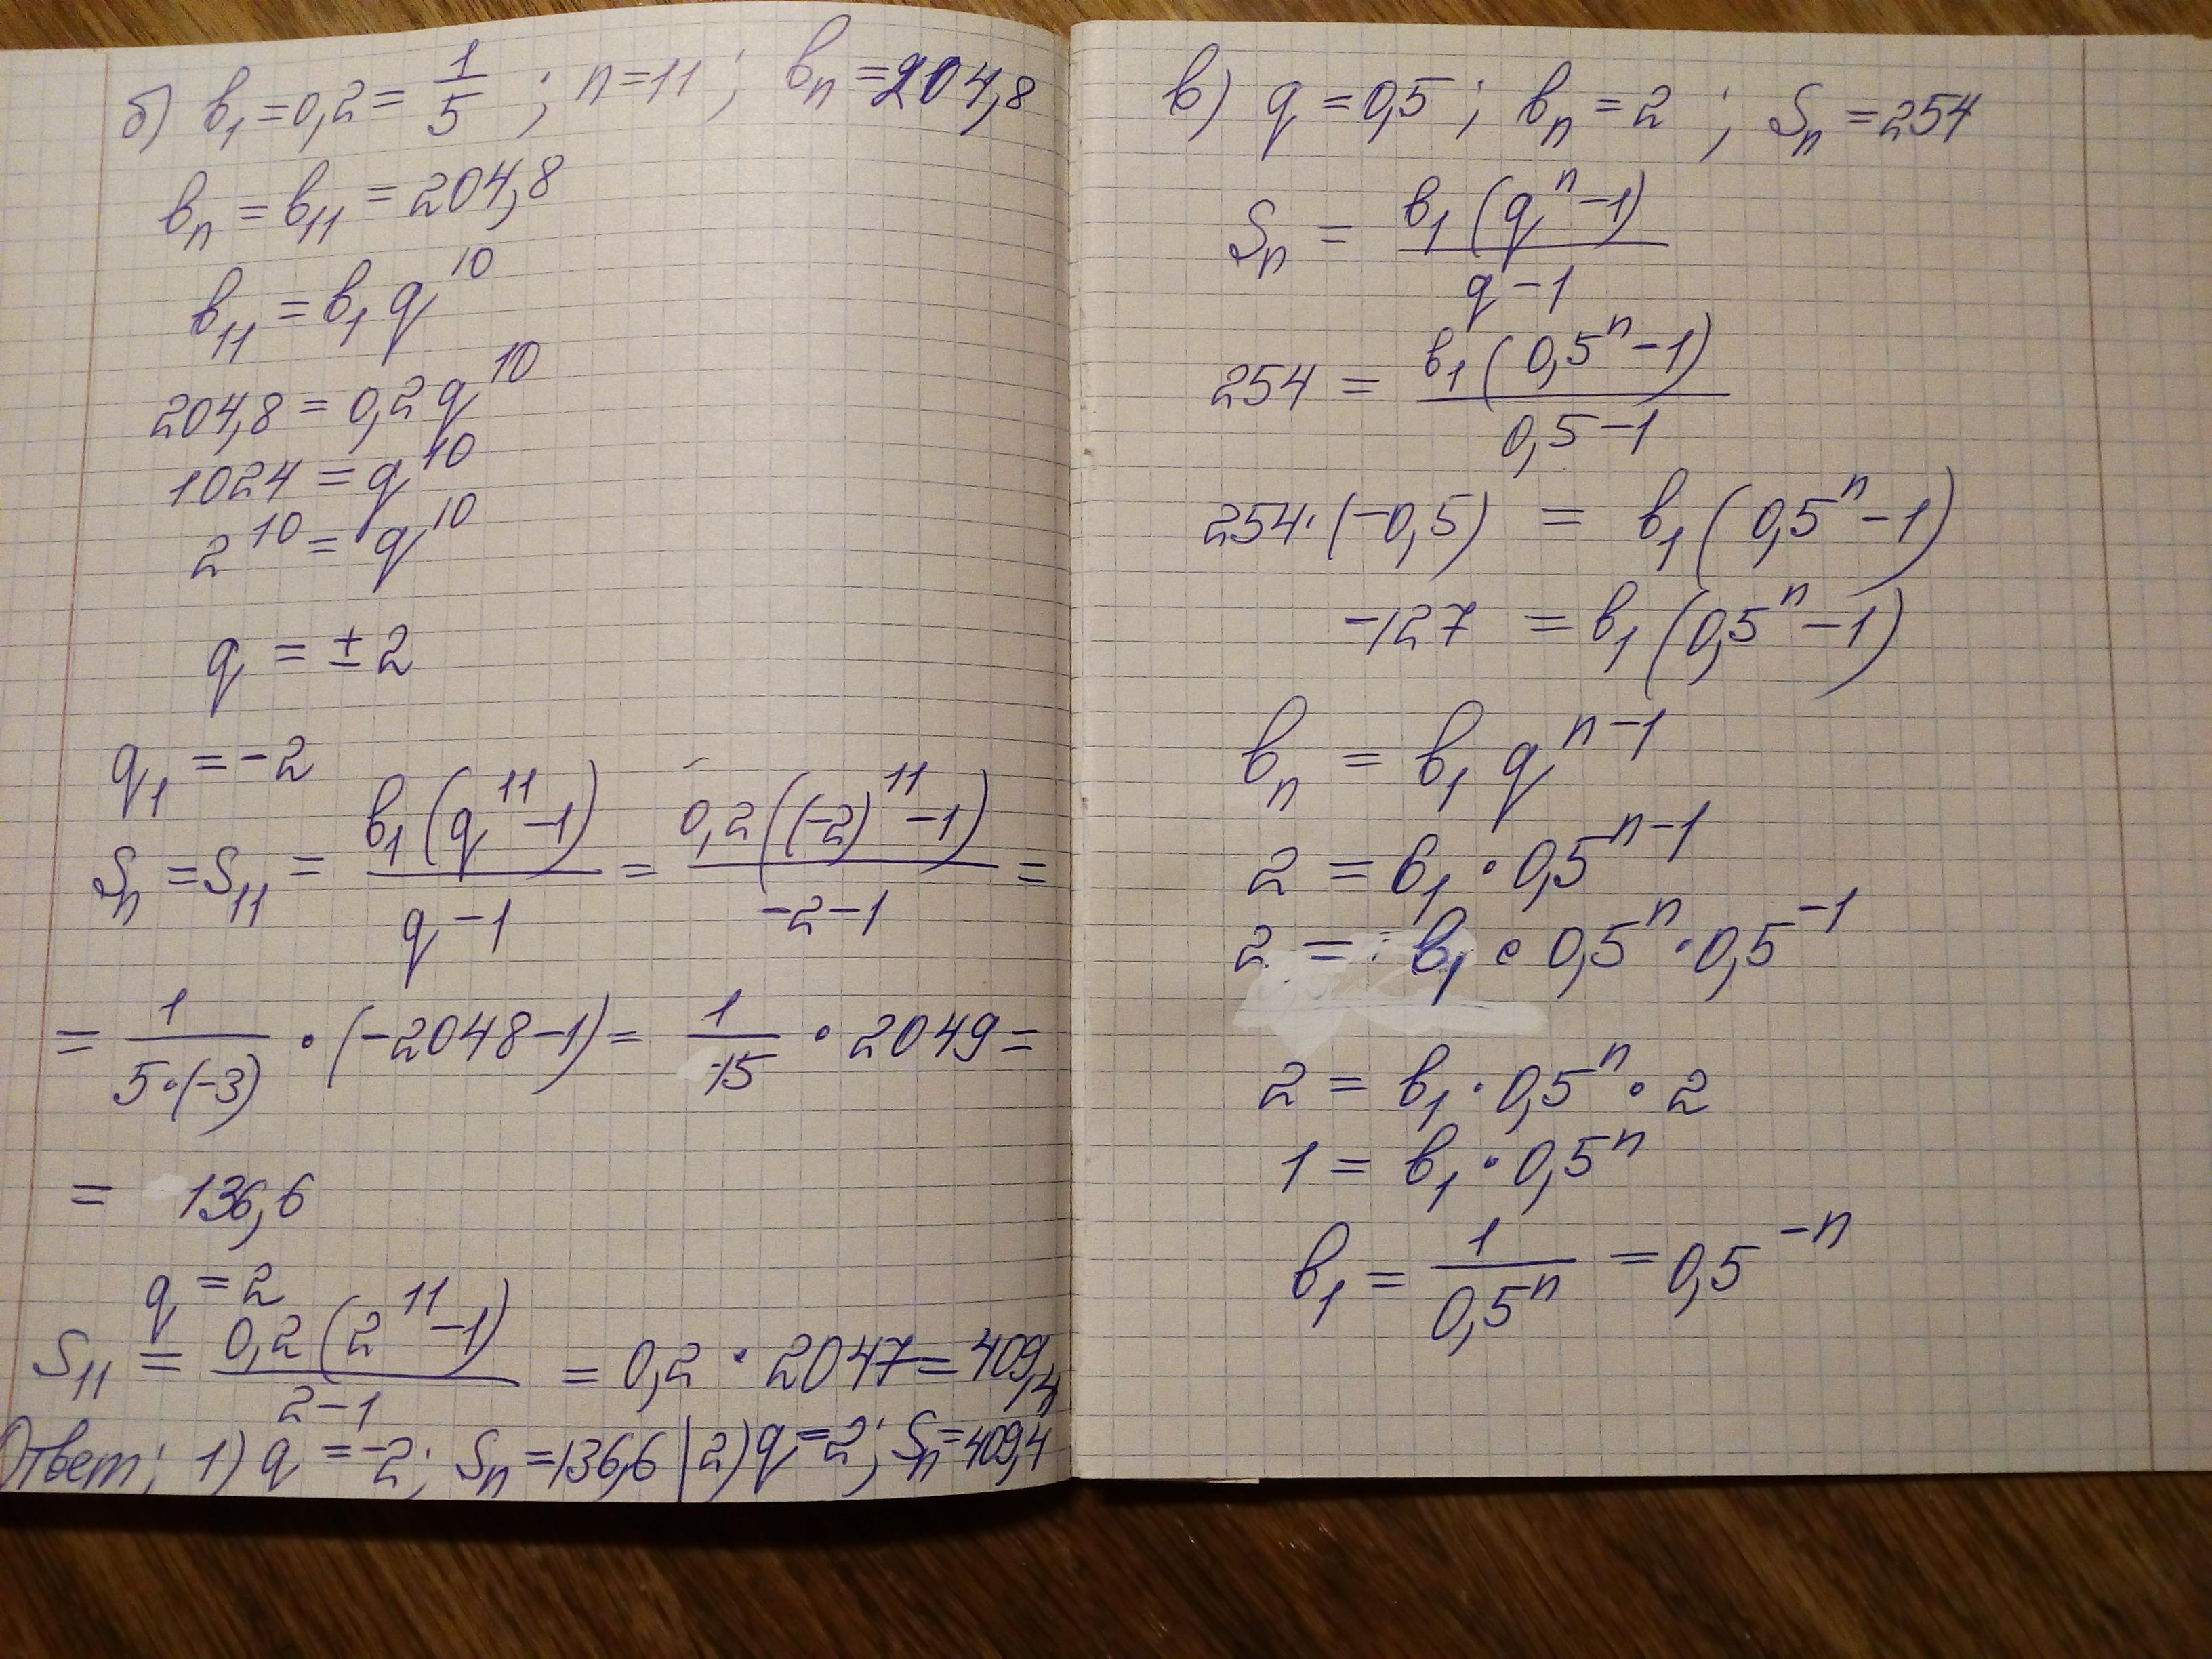 б) b₁ = 0,2 = 1/5 ; n = 11 ; bₙ = 204,8
bₙ = b₁₁ = 204,8
b₁₁ = b₁ q¹⁰
204,8 = 0,2 q¹⁰
1024 = q¹⁰
2¹⁰ = q¹⁰
q = ±2
q₁ = -2
Sₙ = S₁₁ = b₁(q¹¹-1)/(q-1) = 0,2((-2)¹¹-1)/(-2-1) =
= 1/(5·(-3)) · (-2048-1) = 1/15 · 2049 =
= 136,6
q = 2
S₁₁ = 0,2(2¹¹-1)/(2-1) = 0,2 · 2047 = 409,4
Ответ; 1) q = -2; Sₙ = 136,6 | 2) q = 2; Sₙ = 409,4
в) q = 0,5 ; bₙ = 2 ; Sₙ = 254
Sₙ = b₁(qⁿ-1)/(q-1)
254 = b₁(0,5ⁿ-1)/(0,5-1)
254·(-0,5) = b₁(0,5ⁿ-1)
-127 = b₁(0,5ⁿ-1)
bₙ = b₁ qⁿ⁻¹
2 = b₁ · 0,5ⁿ⁻¹
2 = b₁ · 0,5ⁿ · 0,5⁻¹
2 = b₁ · 0,5ⁿ · 2
1 = b₁ · 0,5ⁿ
b₁ = 1/0,5ⁿ = 0,5⁻ⁿ